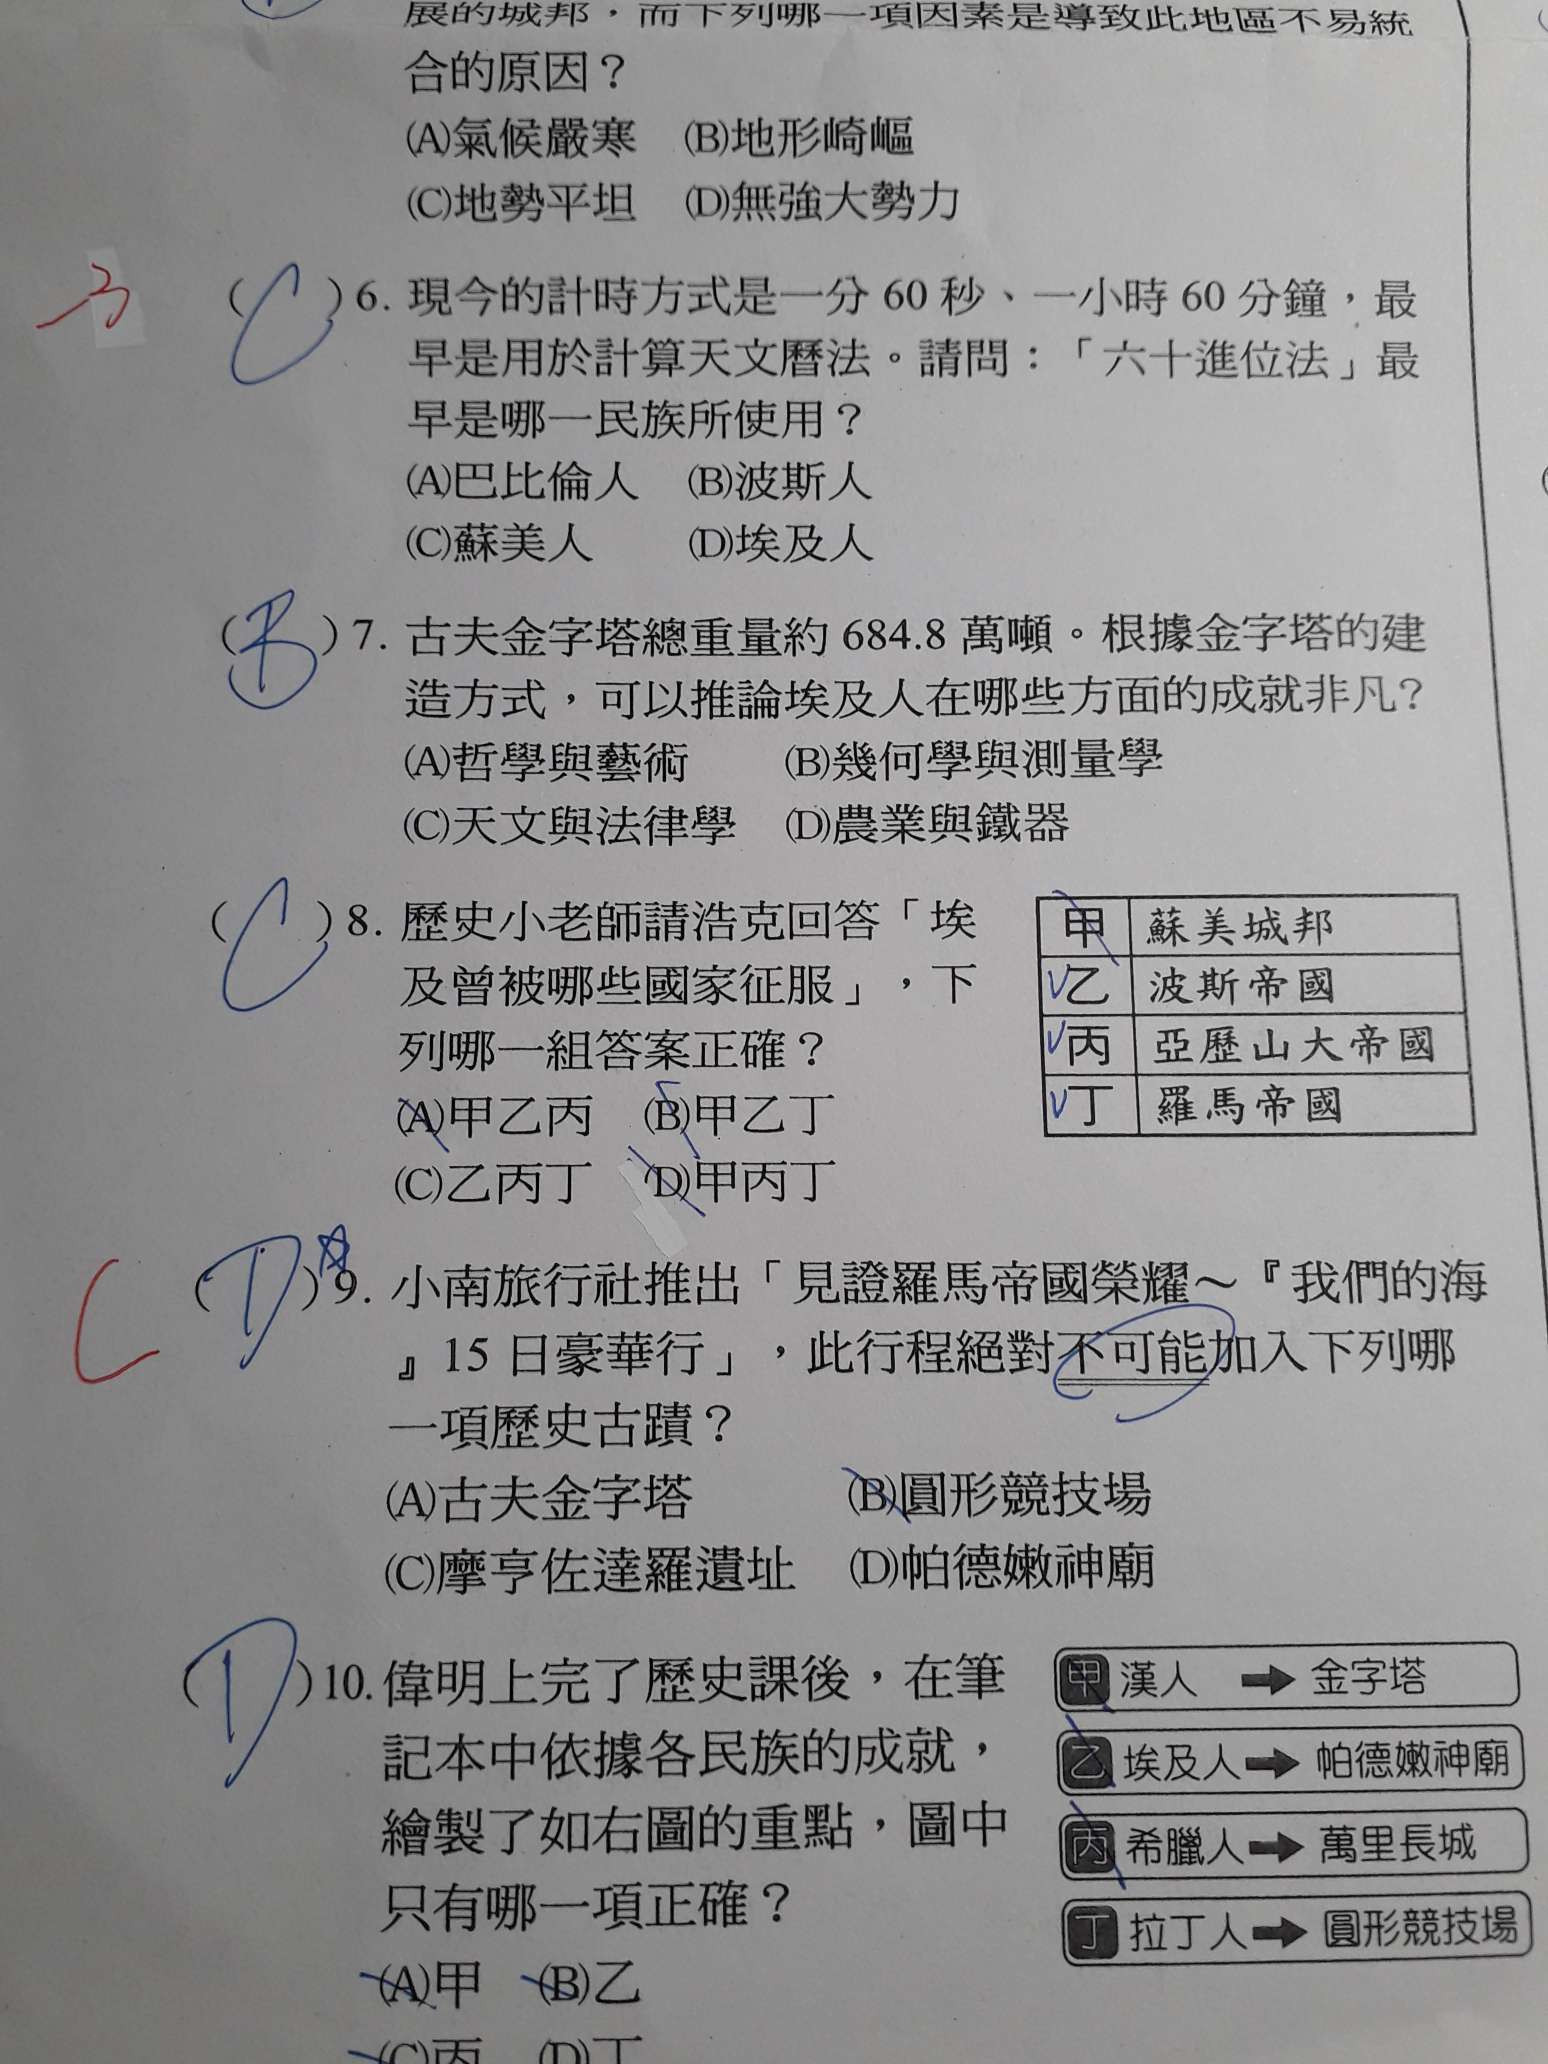 展的城邦，而下列哪一項因素是導致此地區不易統
合的原因？
(A)氣候嚴寒　(B)地形崎嶇
(C)地勢平坦　(D)無強大勢力
(C)6. 現今的計時方式是一分 60 秒、一小時 60 分鐘，最
早是用於計算天文曆法。請問：「六十進位法」最
早是哪一民族所使用？
(A)巴比倫人　(B)波斯人
(C)蘇美人　(D)埃及人
(B)7. 古夫金字塔總重量約 684.8 萬噸。根據金字塔的建
造方式，可以推論埃及人在哪些方面的成就非凡？
(A)哲學與藝術　(B)幾何學與測量學
(C)天文與法律學　(D)農業與鐵器
(C)8. 歷史小老師請浩克回答「埃
及曾被哪些國家征服」，下
列哪一組答案正確？
(A)甲乙丙　(B)甲乙丁
(C)乙丙丁　(D)甲丙丁
甲 蘇美城邦
乙 波斯帝國
丙 亞歷山大帝國
丁 羅馬帝國
C (D)9. 小南旅行社推出「見證羅馬帝國榮耀～『我們的海
』15 日豪華行」，此行程絕對不可能加入下列哪
一項歷史古蹟？
(A)古夫金字塔　(B)圓形競技場
(C)摩亨佐達羅遺址　(D)帕德嫩神廟
(D)10. 偉明上完了歷史課後，在筆
記本中依據各民族的成就，
繪製了如右圖的重點，圖中
只有哪一項正確？
(A)甲　(B)乙
(C)丙　(D)丁
甲 漢人 ➡ 金字塔
乙 埃及人 ➡ 帕德嫩神廟
丙 希臘人 ➡ 萬里長城
丁 拉丁人 ➡ 圓形競技場